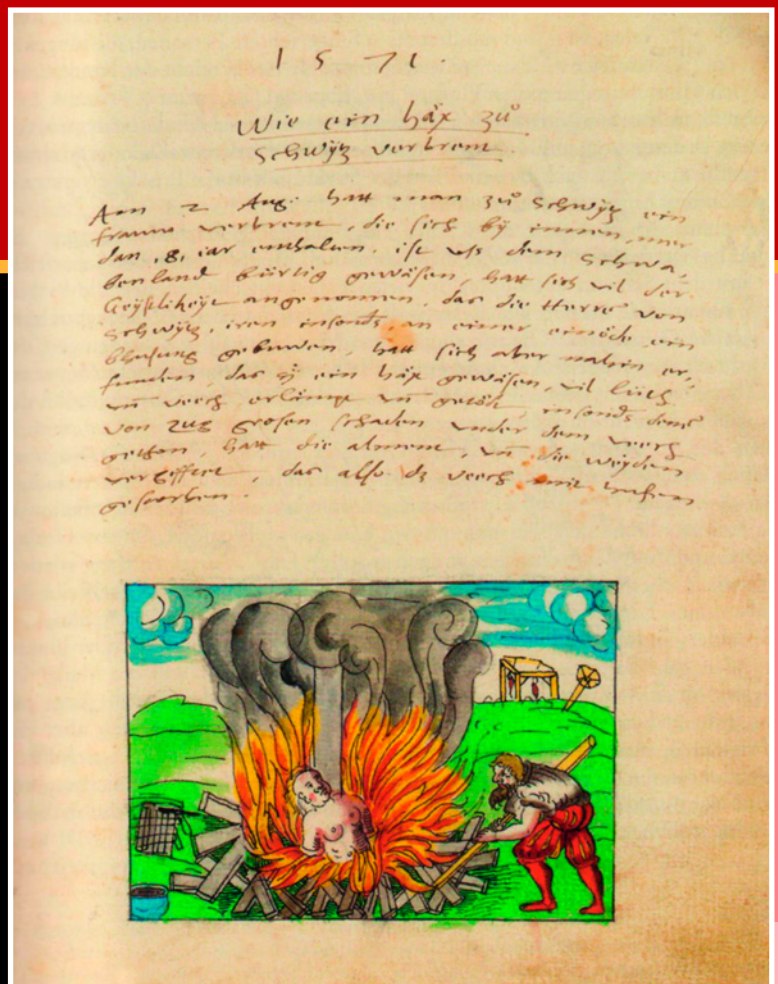 1571.
Wie ein häx zů
Schwÿtz verbrent
Am 2 Aug: hatt man zů Schwÿtz ein
frauw verbrent, die sich bÿ innen mer
dan .8. iar enthalten. ist uss dem Schwa,
benland bürtig gewäsen, hatt sich vil der
Geÿstlikeyt angenommen, das die Herrē von
Schwÿtz, iren insonds an einer einöde ein
bhusung gebuwen, hatt sich aber nahin er,
funden, das sÿ ein häx gewäsen, vil lüth
uñ veech erlämpt uñ getödt, insonds denē
von Zug grosen schaden under dem veech
gethon, hatt die alment, uñ die weÿden
vergifftet, das also dz veech mit hufen
gestorben.